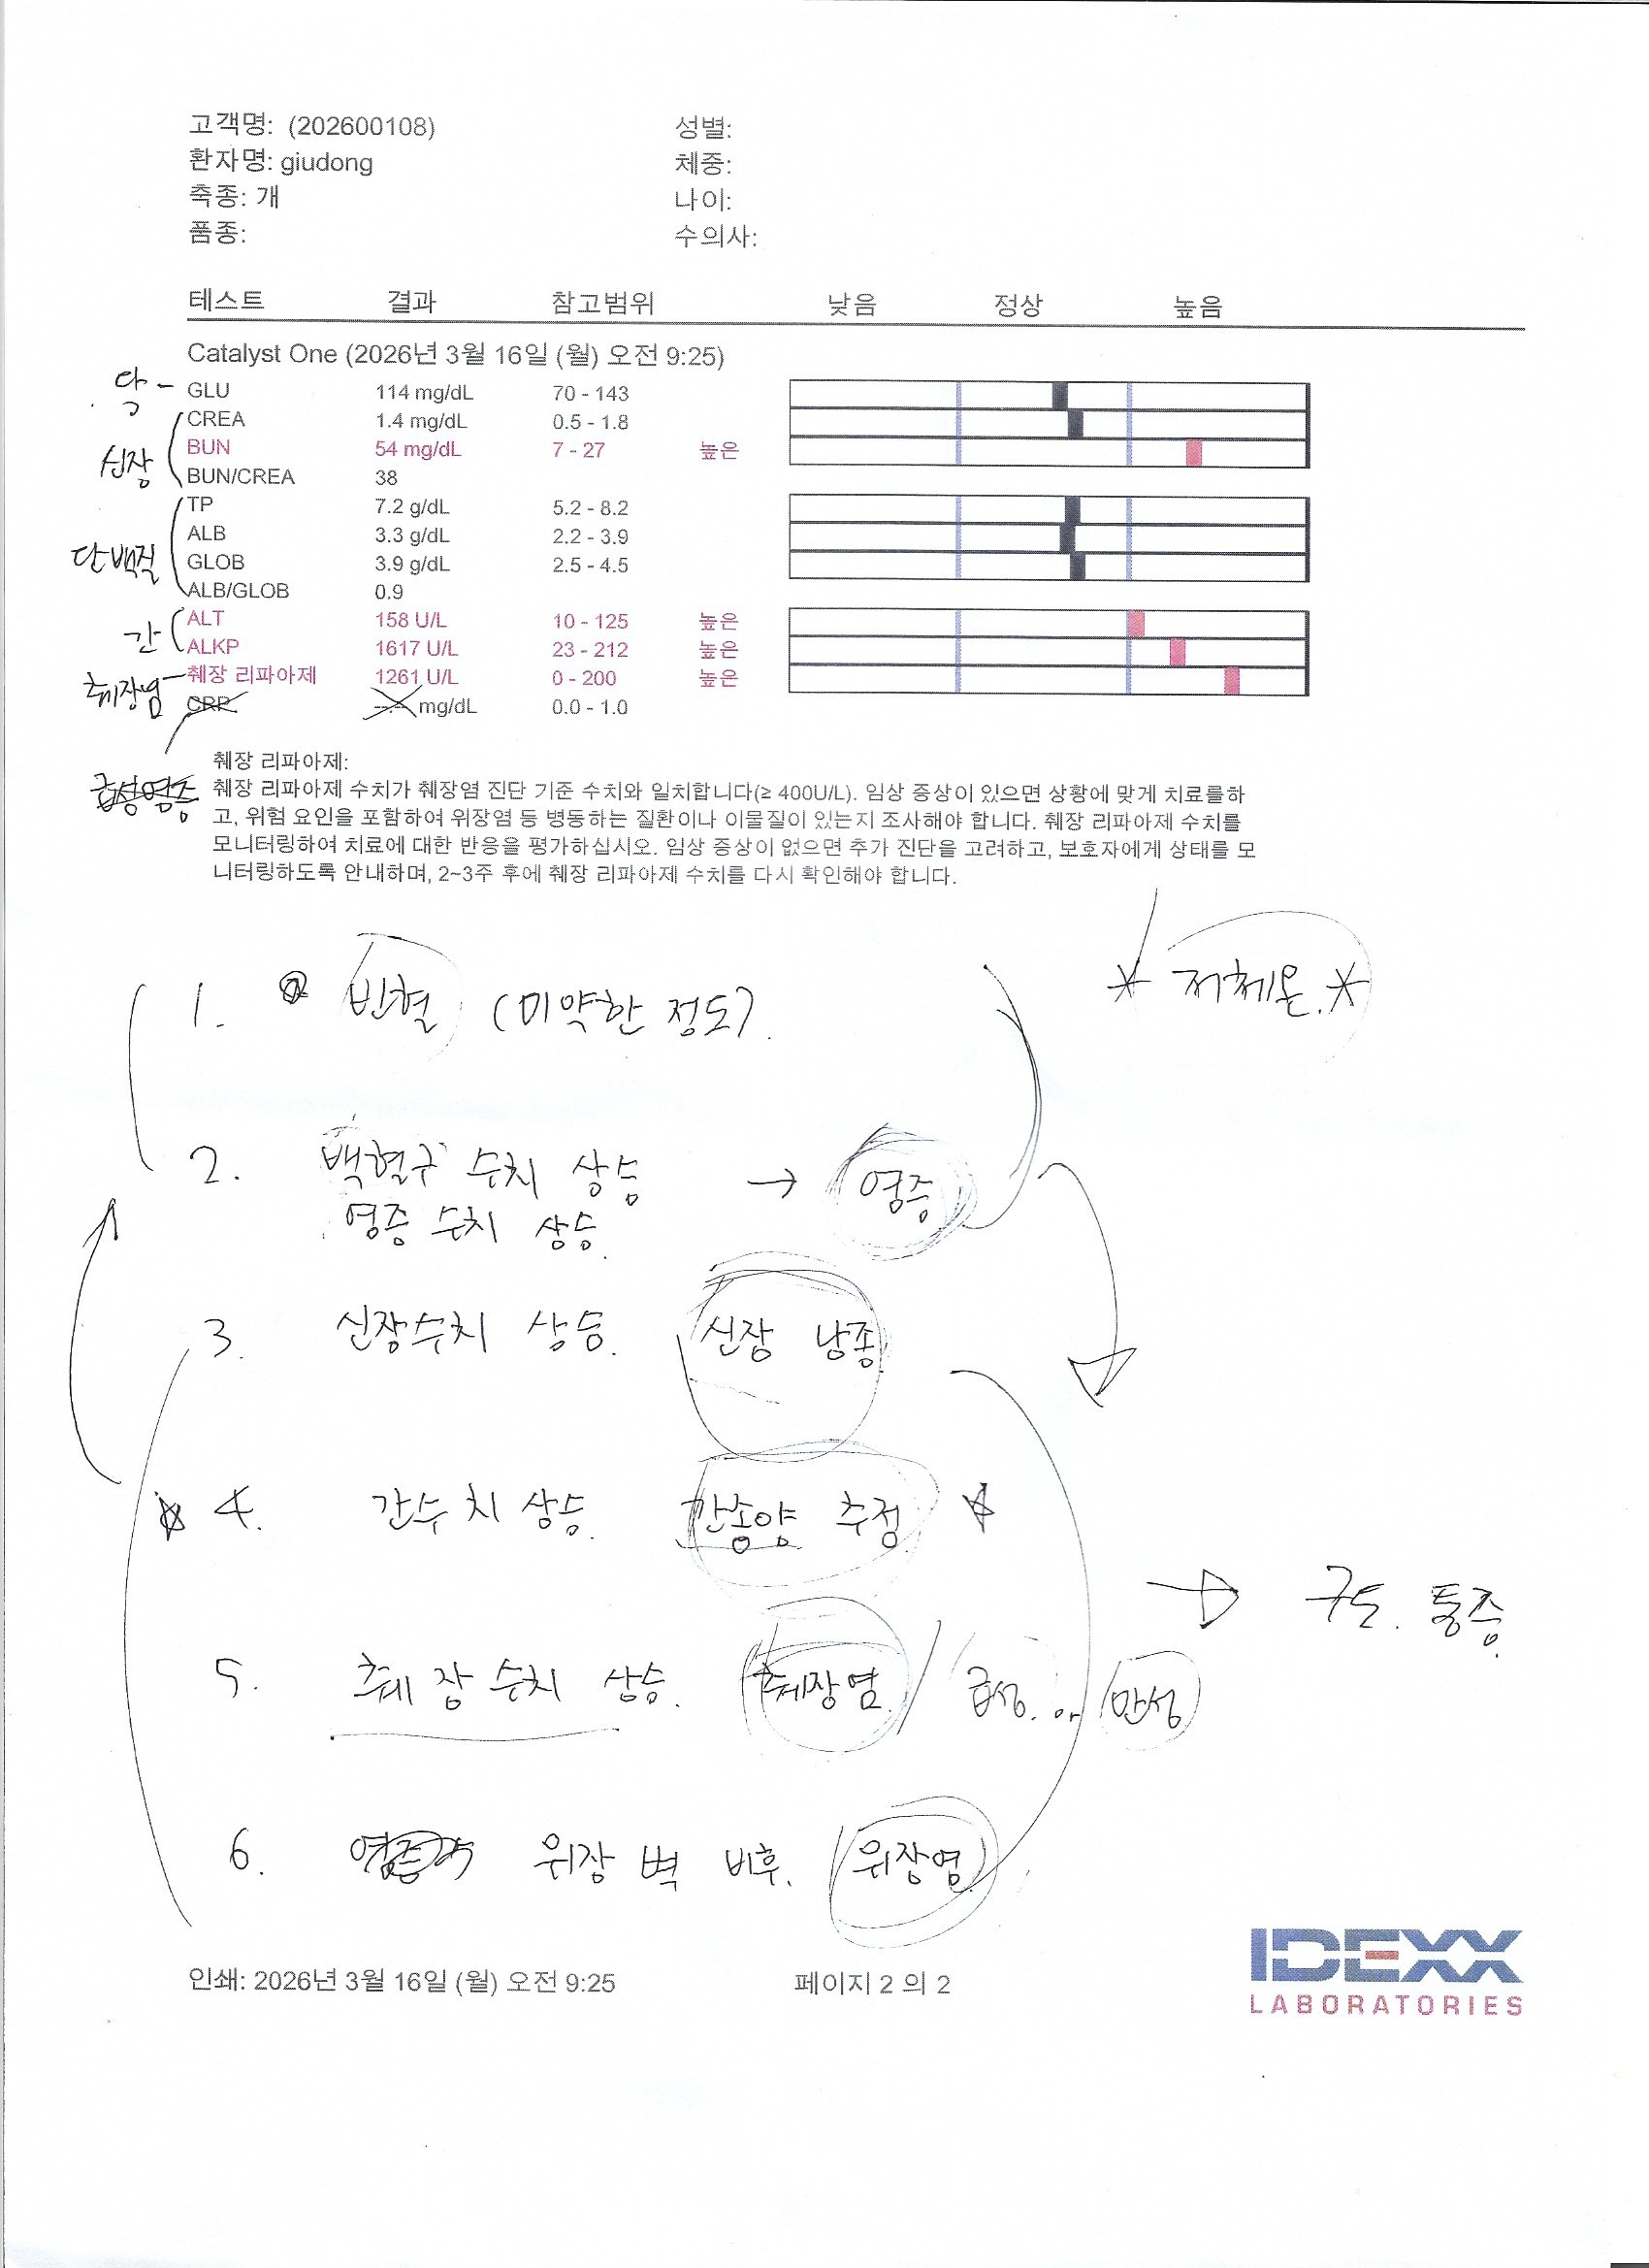 고객명: (202600108) 성별:
환자명: giudong 체중:
축종: 개 나이:
품종: 수의사:
테스트 결과 참고범위 낮음 정상 높음
Catalyst One (2026년 3월 16일 (월) 오전 9:25)
당 - GLU 114 mg/dL 70 - 143
CREA 1.4 mg/dL 0.5 - 1.8
신장 BUN 54 mg/dL 7 - 27 높은
BUN/CREA 38
TP 7.2 g/dL 5.2 - 8.2
ALB 3.3 g/dL 2.2 - 3.9
단백질 GLOB 3.9 g/dL 2.5 - 4.5
ALB/GLOB 0.9
ALT 158 U/L 10 - 125 높은
간 ALKP 1617 U/L 23 - 212 높은
췌장염 - 췌장 리파아제 1261 U/L 0 - 200 높은
CRP --.- mg/dL 0.0 - 1.0
급성염증
췌장 리파아제:
췌장 리파아제 수치가 췌장염 진단 기준 수치와 일치합니다(≥ 400U/L). 임상 증상이 있으면 상황에 맞게 치료를하
고, 위험 요인을 포함하여 위장염 등 병동하는 질환이나 이물질이 있는지 조사해야 합니다. 췌장 리파아제 수치를
모니터링하여 치료에 대한 반응을 평가하십시오. 임상 증상이 없으면 추가 진단을 고려하고, 보호자에게 상태를 모
니터링하도록 안내하며, 2~3주 후에 췌장 리파아제 수치를 다시 확인해야 합니다.
* 저체온. *
1. 빈혈 (미약한 정도).
2. 백혈구 수치 상승 → 염증
염증 수치 상승.
3. 신장수치 상승. 신장 낭종
4. 간수치 상승. 간종양 추정
→ 구토. 통증.
5. 췌장수치 상승. 췌장염 / 급성. or 만성
6. 위장벽 비후. 위장염
인쇄: 2026년 3월 16일 (월) 오전 9:25 페이지 2 의 2
IDEXX
LABORATORIES